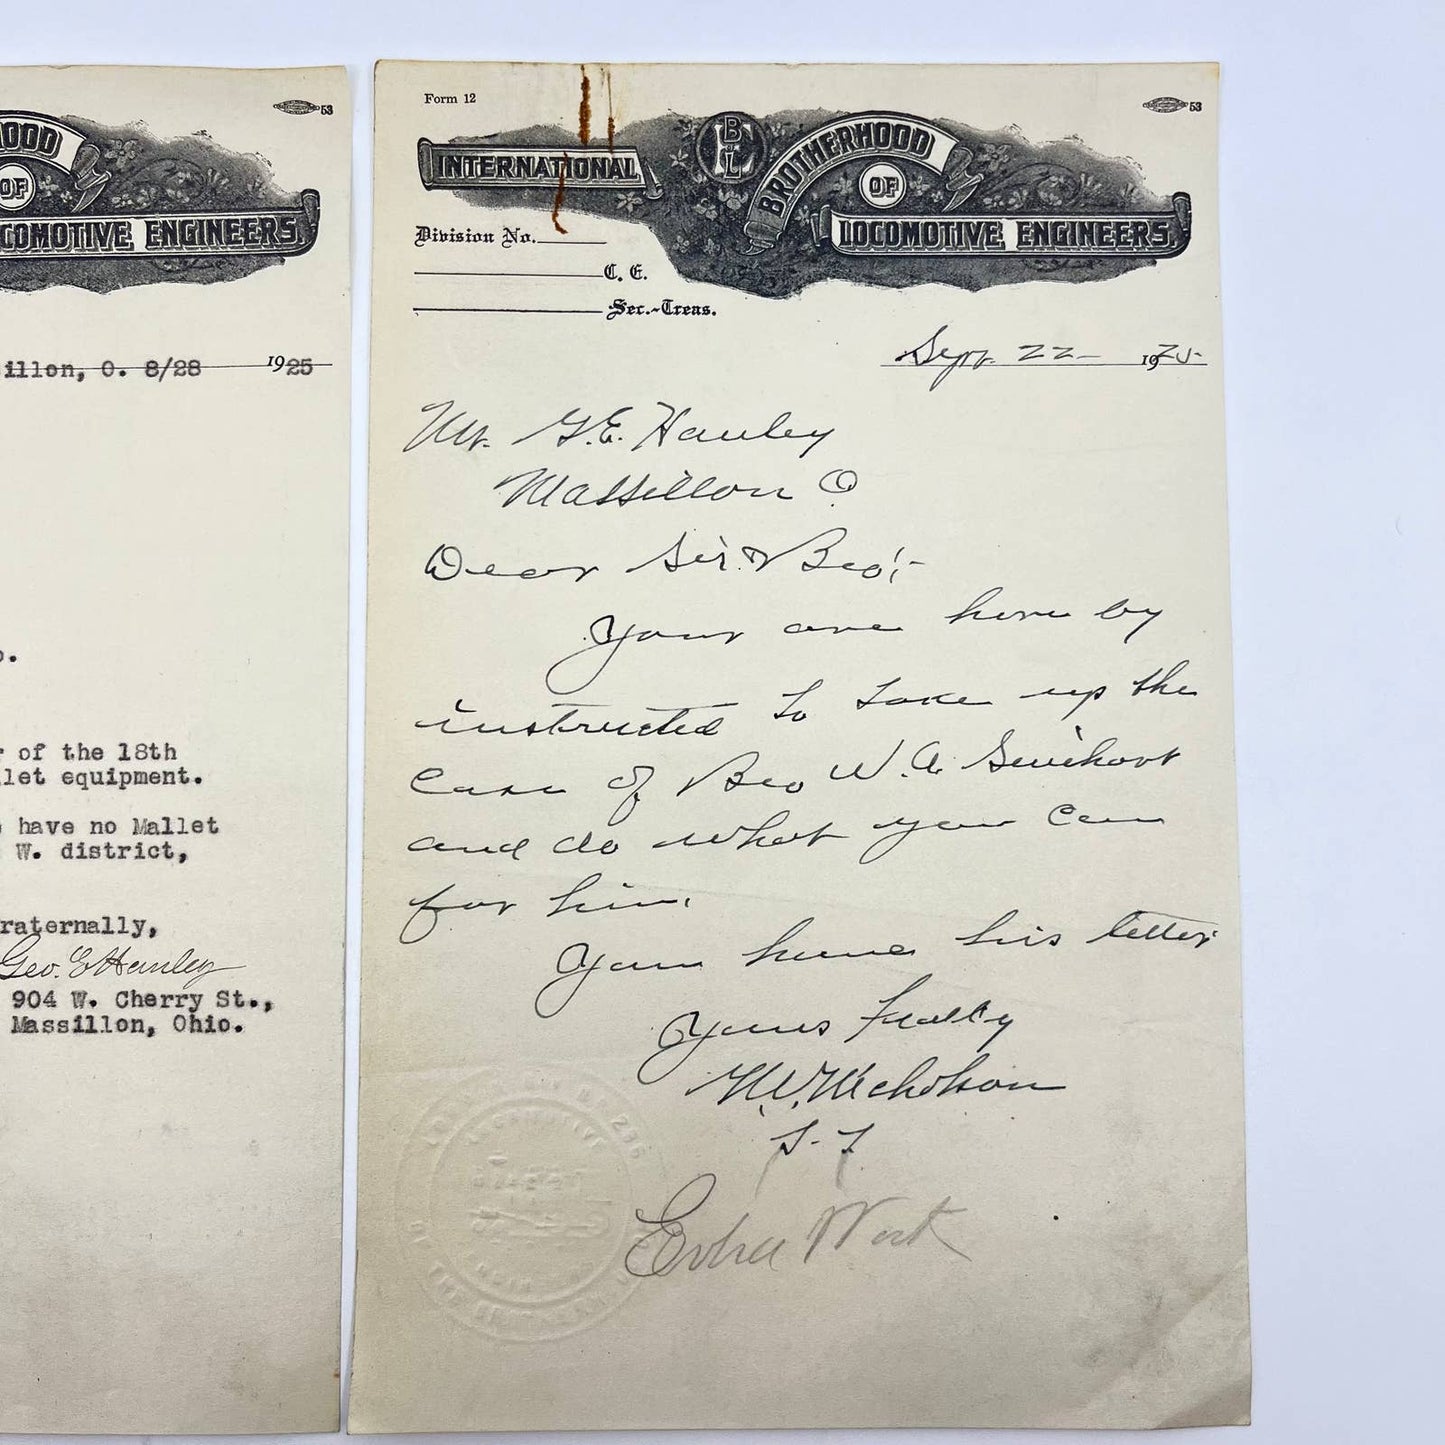 HOOD
OF
COMOTIVE ENGINEERS
53
illon, O. 8/28 1925
o.
r of the 18th
llet equipment.
e have no Mallet
W. district,
raternally,
Geo. E Hanley
904 W. Cherry St.,
Massillon, Ohio.
Form 12
53
INTERNATIONAL
B L E
BROTHERHOOD
OF
LOCOMOTIVE ENGINEERS
Division No.
C. E.
Sec.-Treas.
Sept. 22 - 1925-
Mr. G.E. Hanley
Massillon O
Dear Sir & Bro:-
Your are here by
instructed to take up the
case of Bro W. A.
and do what you can
for him.
You have his letter
Yours Fratly
Nicholson
S-T
Extra Work